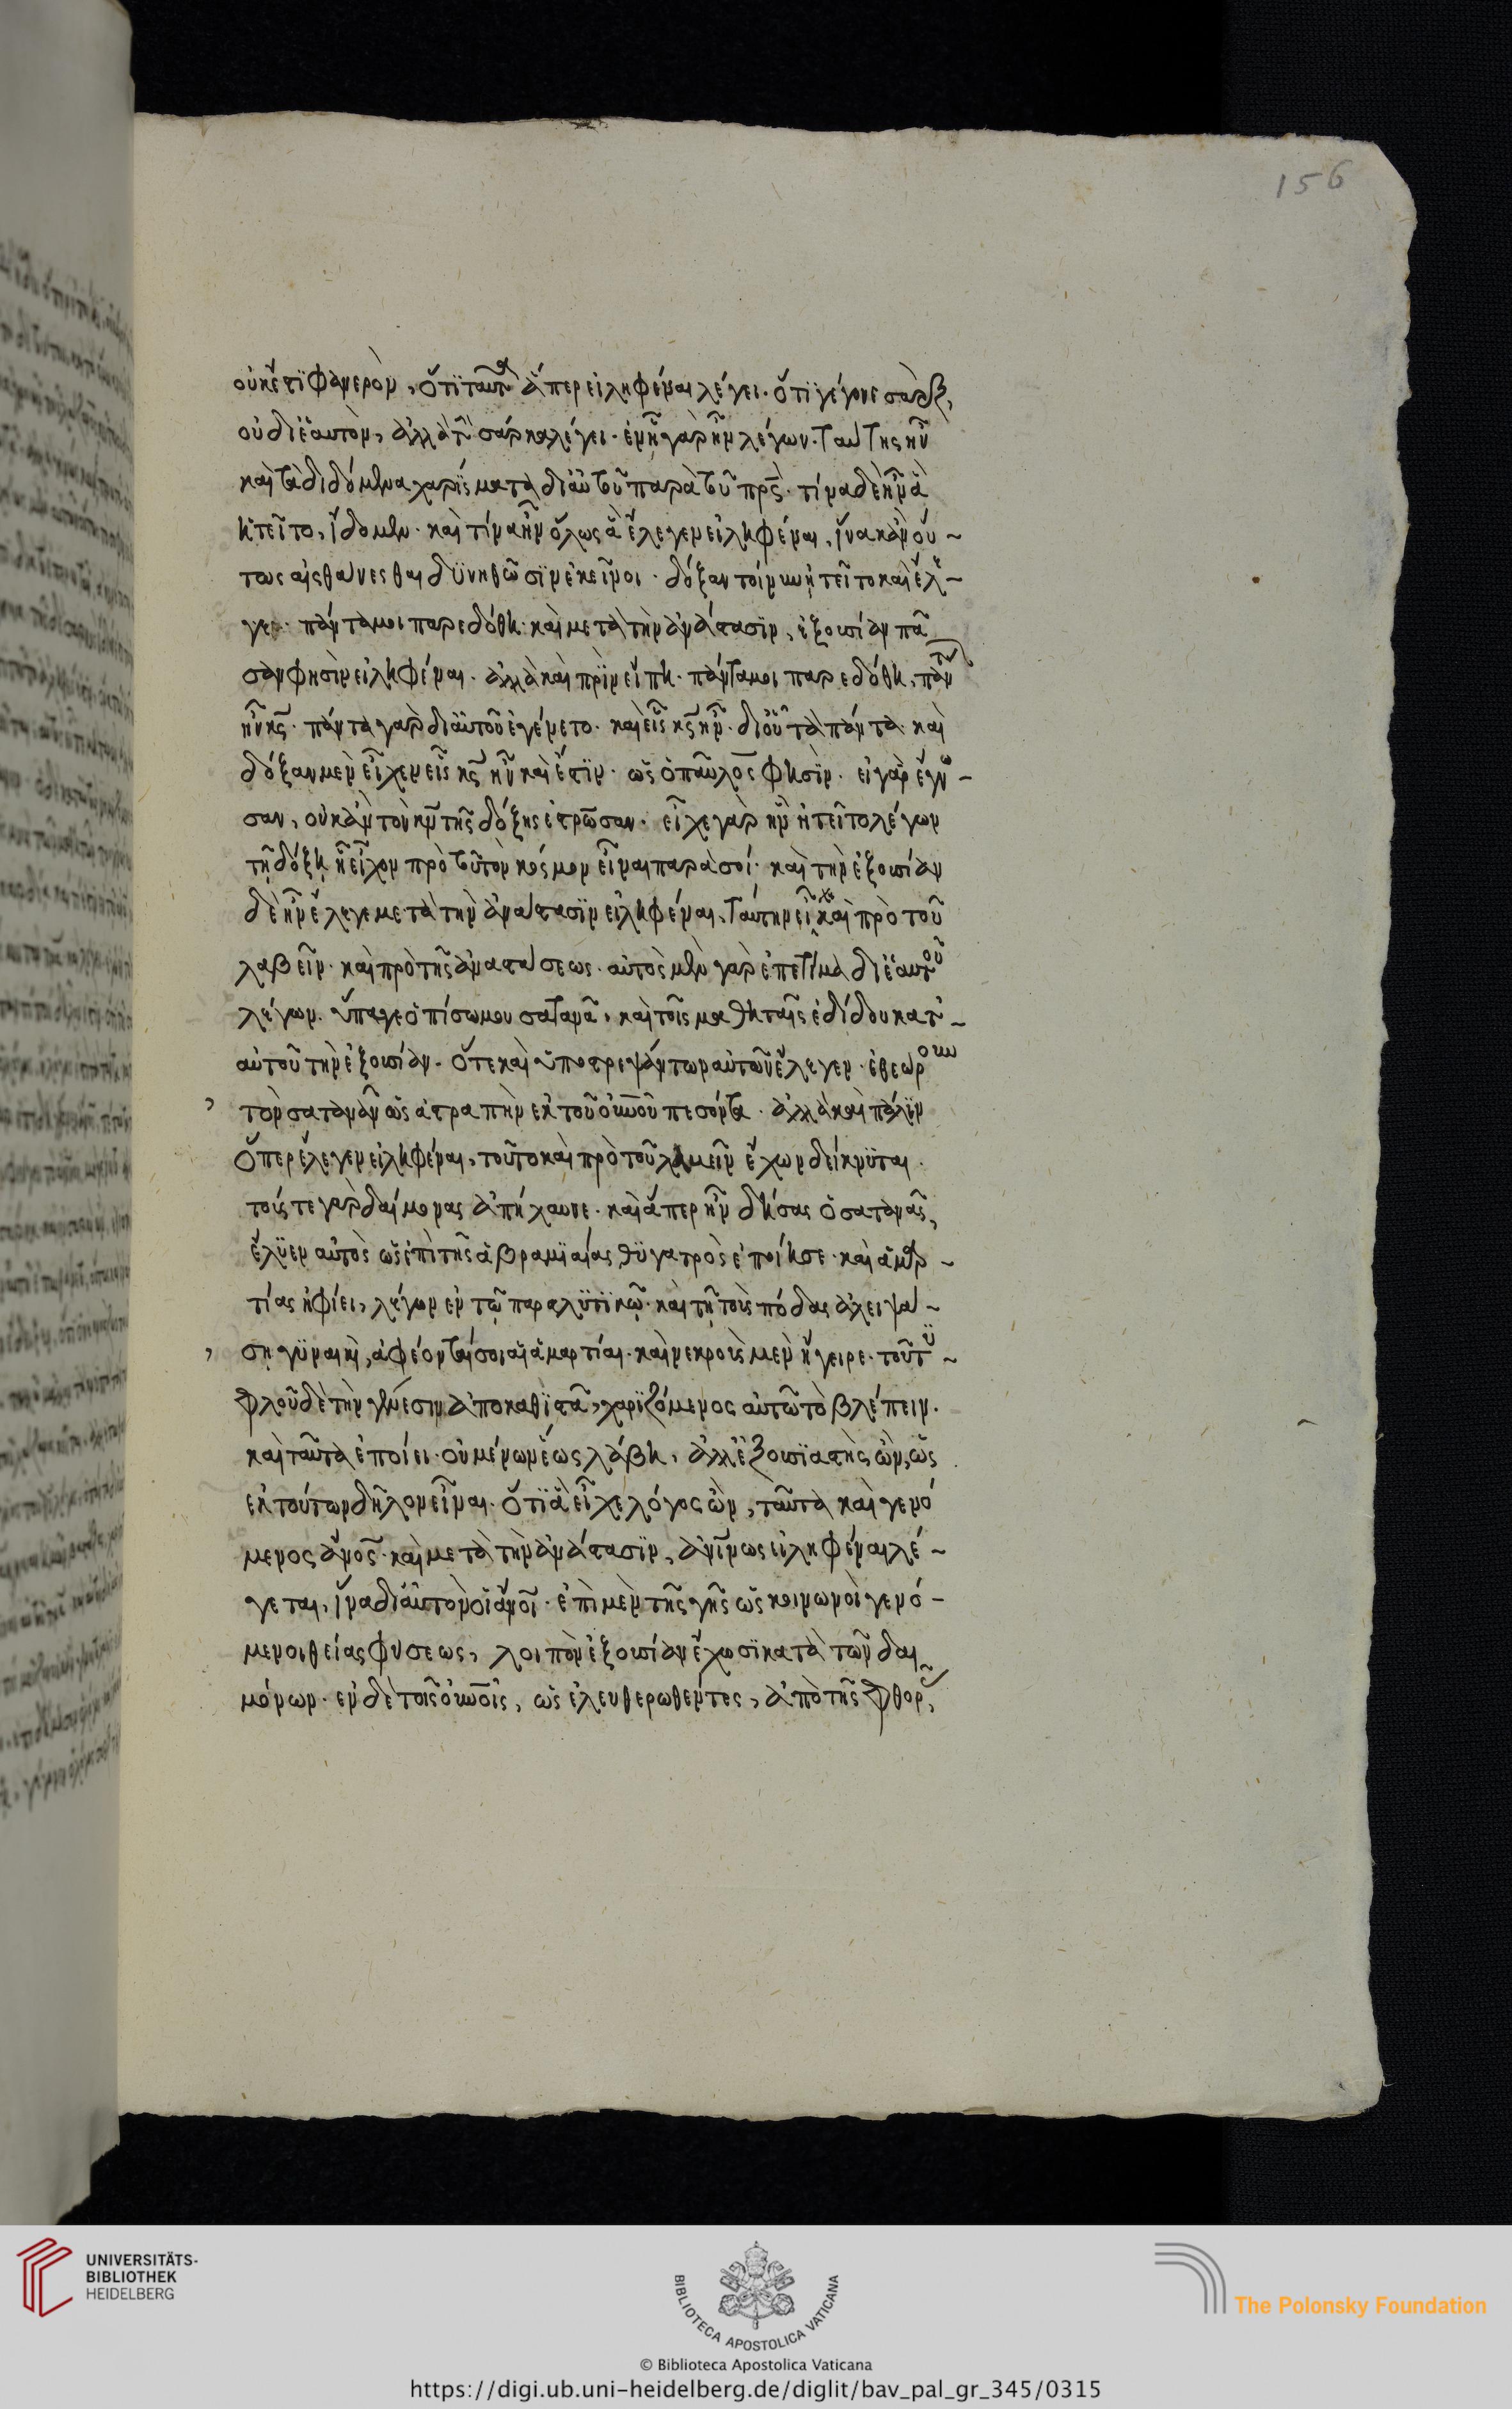 οὐκέτι φανερὸν, ὅτι ταῦτα ἅπερ εἰληφέναι λέγει. ὅτι γέγονε σὰρξ,
οὐ δι' ἑαυτὸν, ἀλλὰ τ̀ σάρκα λέγει· ἐν ᾗ γὰρ ἦν λέγων. ταύτης ἦν
καὶ τὰ διδόμενα χαρίσματα δι' αὐτοῦ παρὰ τοῦ πρ̅ς· τίνα δὲ ἦν ἃ
ἠτεῖτο, ἴδομεν· καὶ τίνα ἦν ὅλως ἃ ἔλεγεν εἰληφέναι, ἵνα κἂν οὕ-
τως αἰσθάνεσθαι δυνηθῶσιν ἐκεῖνοι· δόξαν τοίνυν ἠτεῖτο καὶ ἔλε-
γε· πάντα μοι παρεδόθη· καὶ μετὰ τὴν ἀνάστασιν, ἐξουσίαν πᾶ
σαν φησὶν εἰληφέναι. ἀλλὰ καὶ πρὶν εἴπη· πάντα μοι παρεδόθη, πάντων
ἦν κ̅ς· πάντα γὰρ δι' αὐτοῦ ἐγένετο· καὶ εἷς κ̅ς ἦν· δι' οὗ τὰ πάντα· καὶ
δόξαν μὲν εἶχεν εἷς κ̅ς ἦν καὶ ἔστιν· ὡς ὁ παῦλος φησίν· εἰ γὰρ ἔγνω-
σαν, οὐκ ἂν τὸν κ̅ν τῆς δόξης ἐστρ̅ωσαν· εἶχε γὰρ ἣν ἠτεῖτο λέγων
τῇ δόξη ᾗ εἶχον πρὸ τοῦ τὸν κόσμον εἶναι παρὰ σοί· καὶ τὴν ἐξουσίαν
δὲ ἣν ἔλεγε μετὰ τὴν ἀνάστασιν εἰληφέναι, ταύτην εἶχε καὶ πρὸ τοῦ
λαβεῖν· καὶ πρὸ τῆς ἀναστάσεως· αὐτὸς μὲν γὰρ ἐπετίμα δι' ἑαυτοῦ
λέγων. ὕπαγε ὀπίσω μου σατανᾶ, καὶ τοῖς μαθηταῖς ἐδίδου κατ'-
αὐτοῦ τὴν ἐξουσίαν· ὅτε καὶ ὑποστρεψάντων αὐτῶν ἔλεγεν· ἐθεώρουν
τὸν σατανᾶν ὡς ἀστραπὴν ἐκ τοῦ οὐ̅νοῦ πεσόντα· ἀλλὰ καὶ πάλιν
ὅπερ ἔλεγεν εἰληφέναι, τοῦτο καὶ πρὸ τοῦ λαβεῖν ἔχων δείκνυται.
τούς τε γὰρ δαίμονας ἀπήλαυνε· καὶ ἅπερ ἦν δήσας ὁ σατανᾶς,
ἔλυεν αὐτὸς ὡς ἐπὶ τῆς ἀβραμιαίας θυγατρὸς ἐποίησε· καὶ ἁμαρ-
τίας ἠφίει, λέγων ἐν τῷ παραλυτικῷ· καὶ τῇ τοὺς πόδας ἀλειψά-
ση γυναικὶ, ἀφέονταί σοι αἱ ἁμαρτίαι· καὶ νεκροὺς μὲν ἤγειρε· τοῦ τυ-
φλοῦ δὲ τὴν γένεσιν ἀποκαθιστᾶ, χαριζόμενος αὐτῷ τὸ βλέπειν.
καὶ ταῦτα ἐποίει· οὐ μένων ἕως λάβη, ἀλλ' ἐξουσιαστὴς ὤν, ὡς
ἐκ τούτων δῆλον εἶναι. ὅτι ἃ εἶχε λόγος ὢν, ταῦτα καὶ γενό
μενος ἄν̅ος· καὶ μετὰ τὴν ἀνάστασιν, ἀν̅ίνως εἰληφέναι λέ-
γεται, ἵνα δι' αὐτὸν οἱ ἄν̅οι· ἐπὶ μὲν τῆς γῆς ὡς κοινωνοὶ γενό-
μενοι θείας φύσεως, λοιπὸν ἐξουσίαν ἔχωσι κατὰ τῶν δαι
μόνων· ἐν δὲ τοῖς οὐ̅νοῖς, ὡς ἐλευθερωθέντες, ἀπὸ τῆς φθορᾶς,
156
UNIVERSITÄTS-
BIBLIOTHEK
HEIDELBERG
BIBLIOTECA APOSTOLICA VATICANA
The Polonsky Foundation
© Biblioteca Apostolica Vaticana
https://digi.ub.uni-heidelberg.de/diglit/bav_pal_gr_345/0315